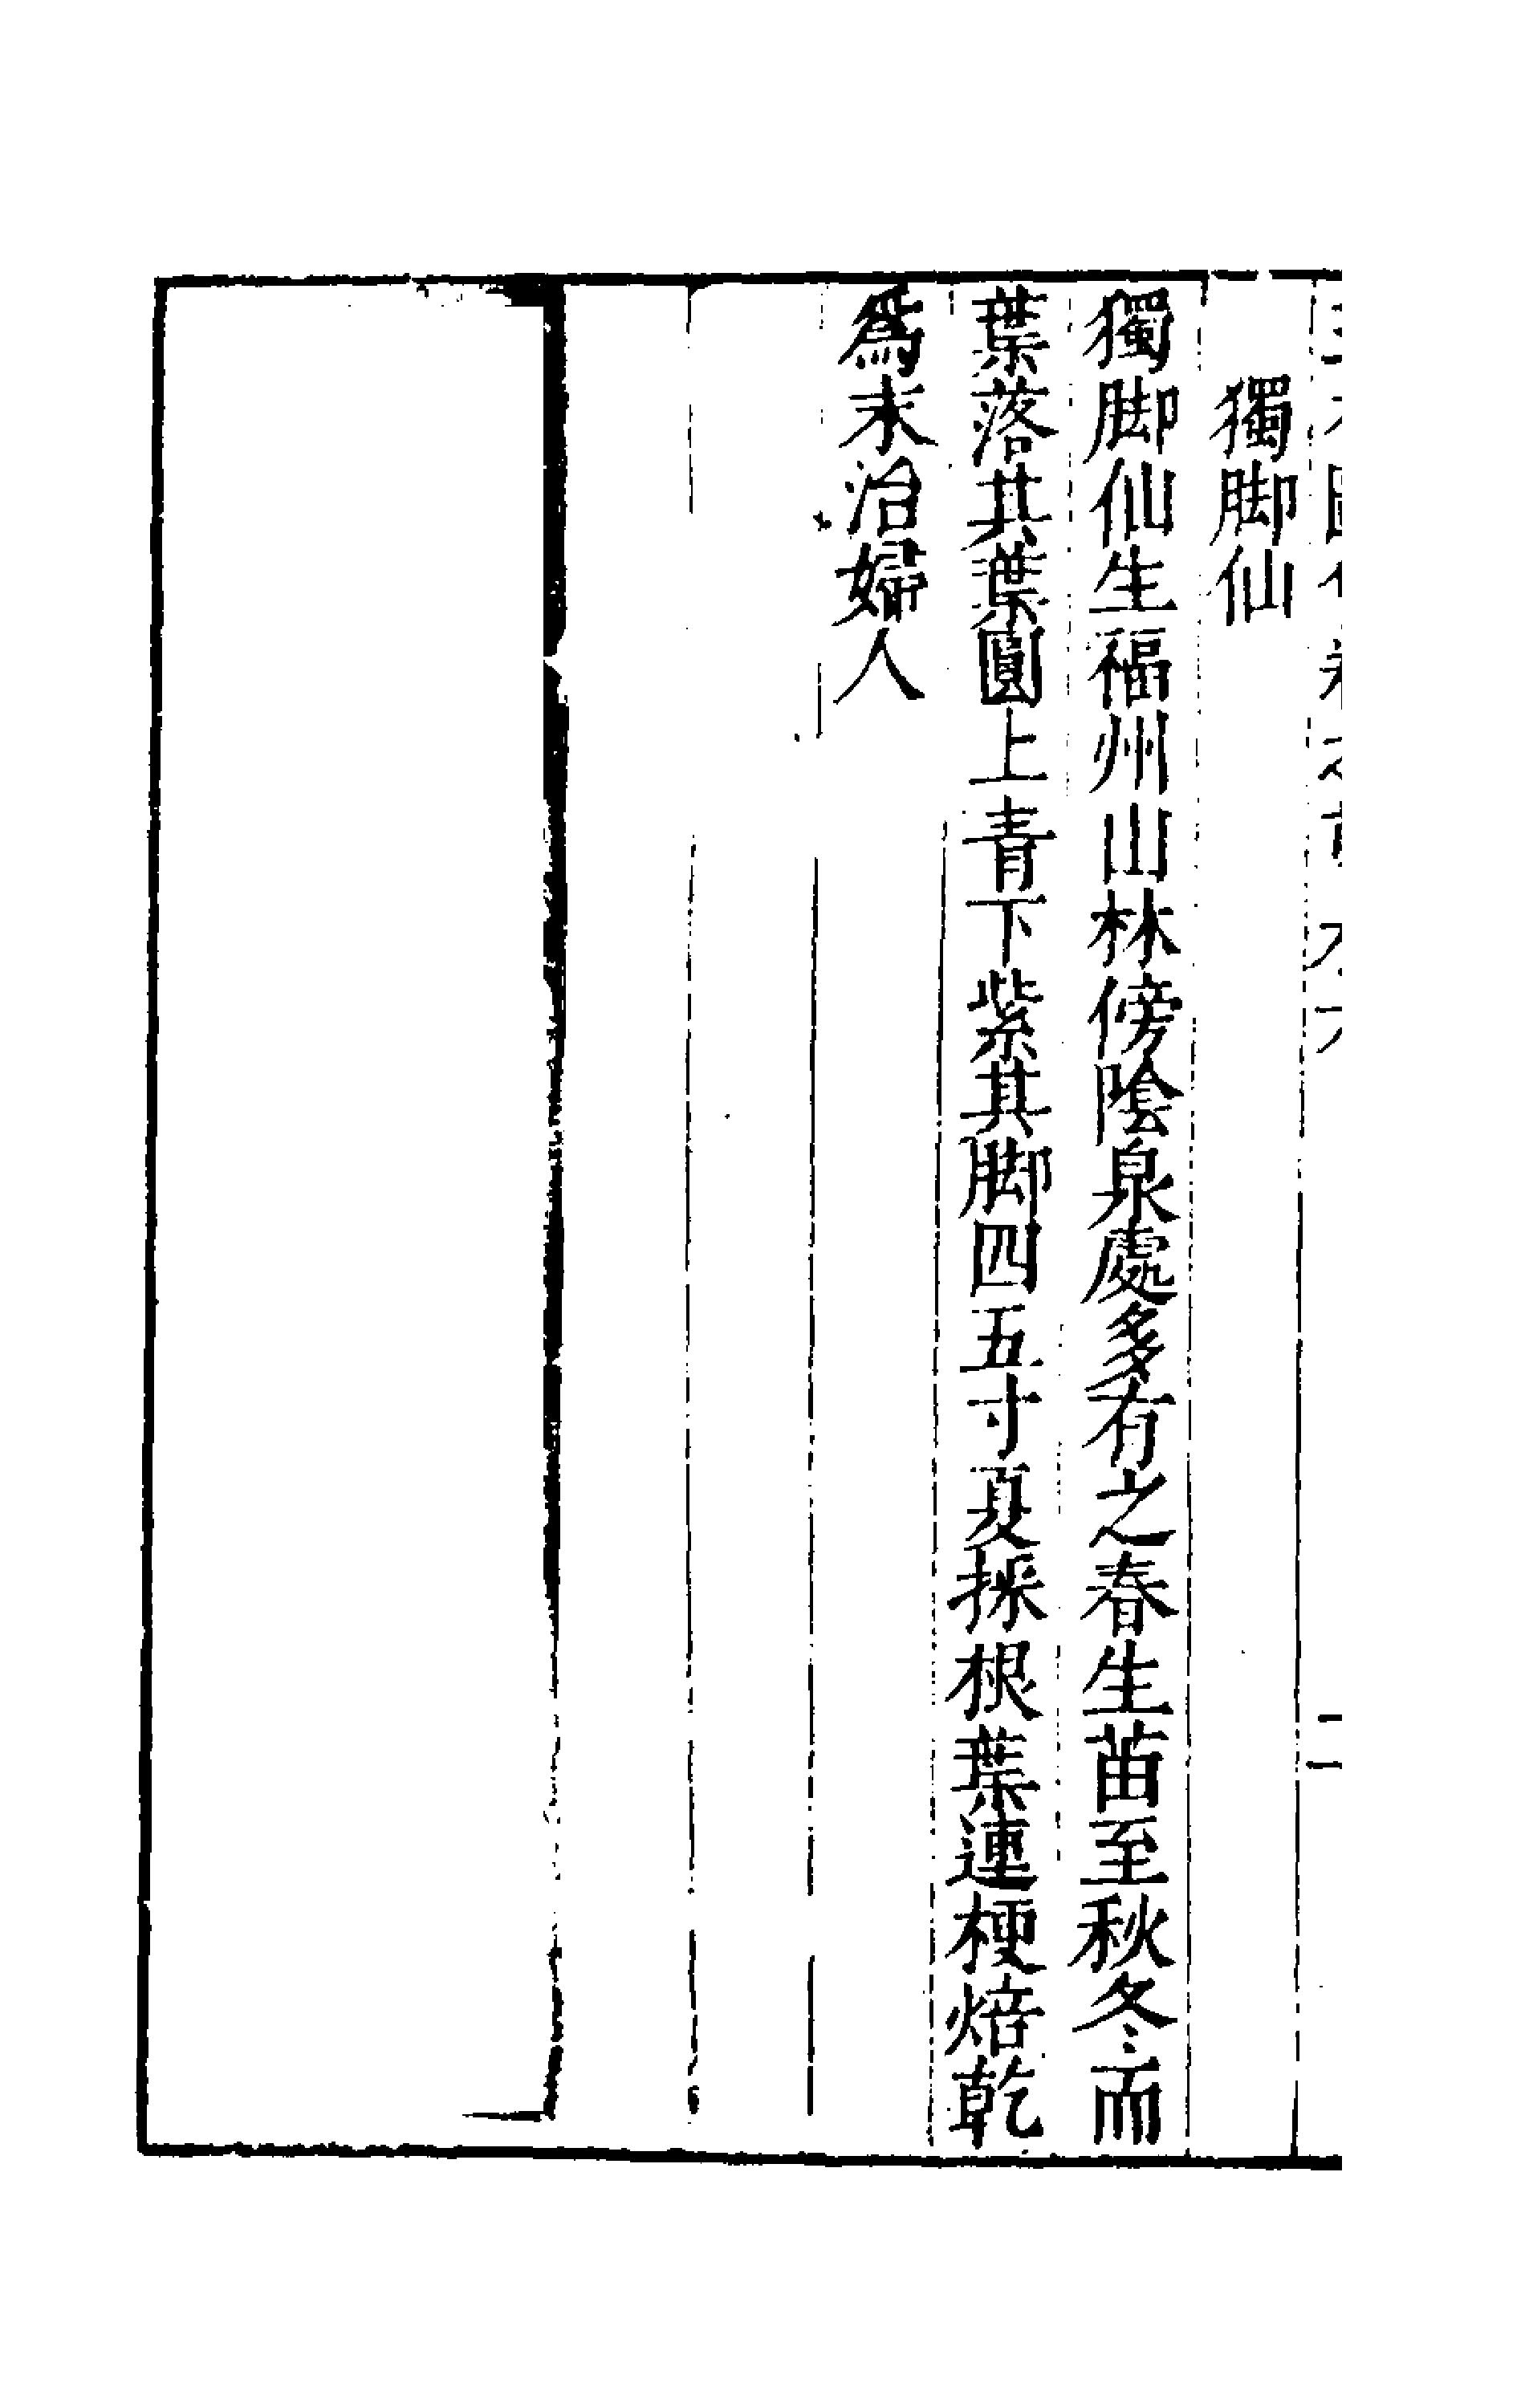 獨脚仙
獨脚仙生福州山林傍陰泉處多有之春生苗至秋冬而
葉落其葉圓上青下紫其脚四五寸夏採根葉連梗焙乾
爲末治婦人